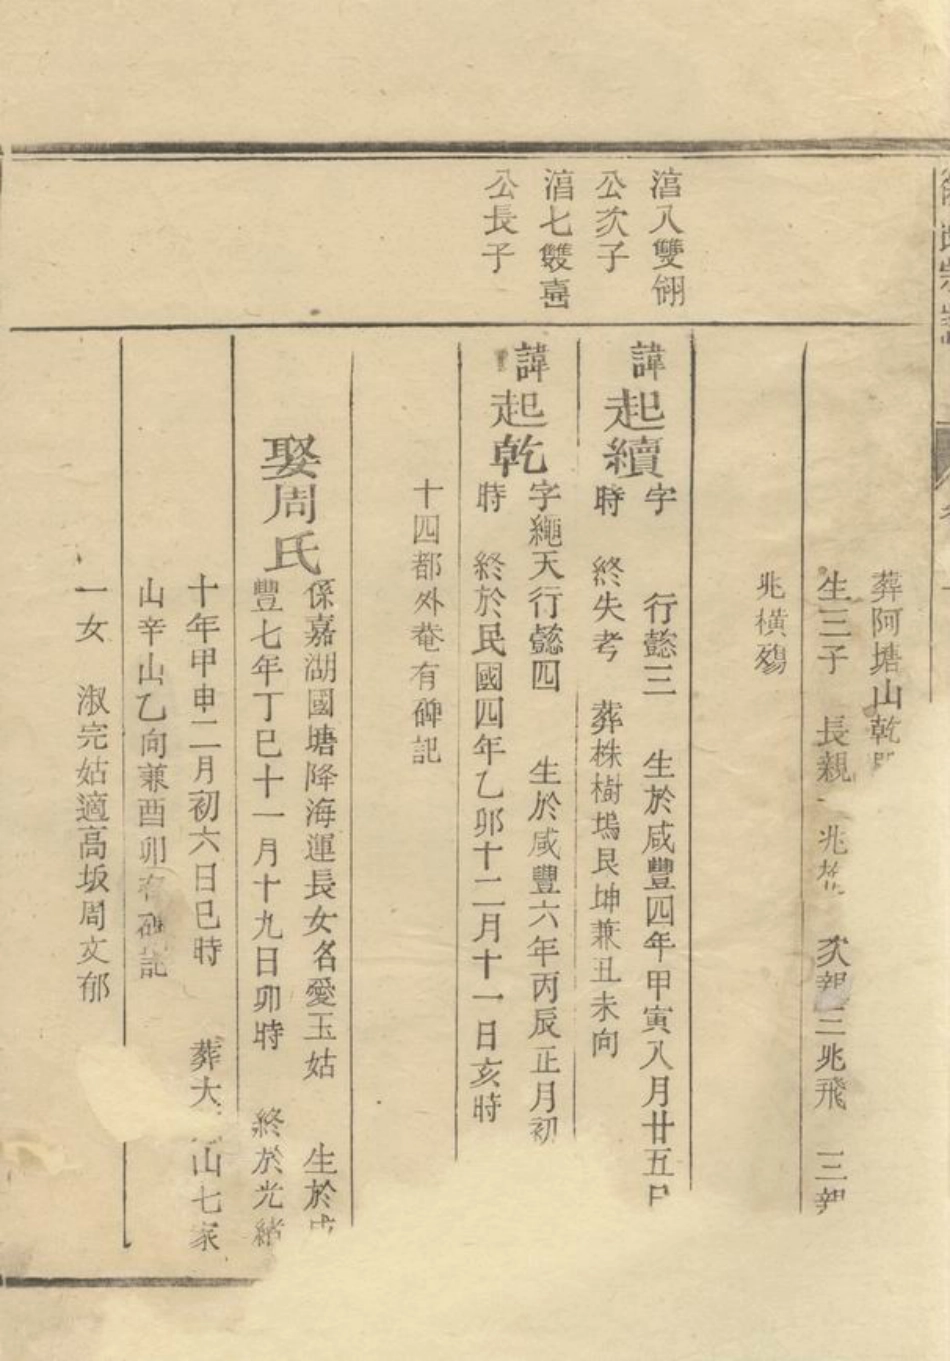 葬阿塘山乾
生三子 長親 兆 次親三兆飛 三親
兆橫殤
湇八雙翎
公次子
諱起續
字 行懿三 生於咸豐四年甲寅八月廿五日
時 終失考 葬株樹塢艮坤兼丑未向
湇七雙喜
公長子
諱起乾
字繩天行懿四 生於咸豐六年丙辰正月初
時 終於民國四年乙卯十二月十一日亥時
十四都外菴有碑記
娶周氏
係嘉湖國塘降海運長女名愛玉姑 生於咸
豐七年丁巳十一月十九日卯時 終於光緒
十年甲申二月初六日巳時 葬大 山七家
山辛山乙向兼酉卯有碑記
一女 淑完姑適高坂周文郁